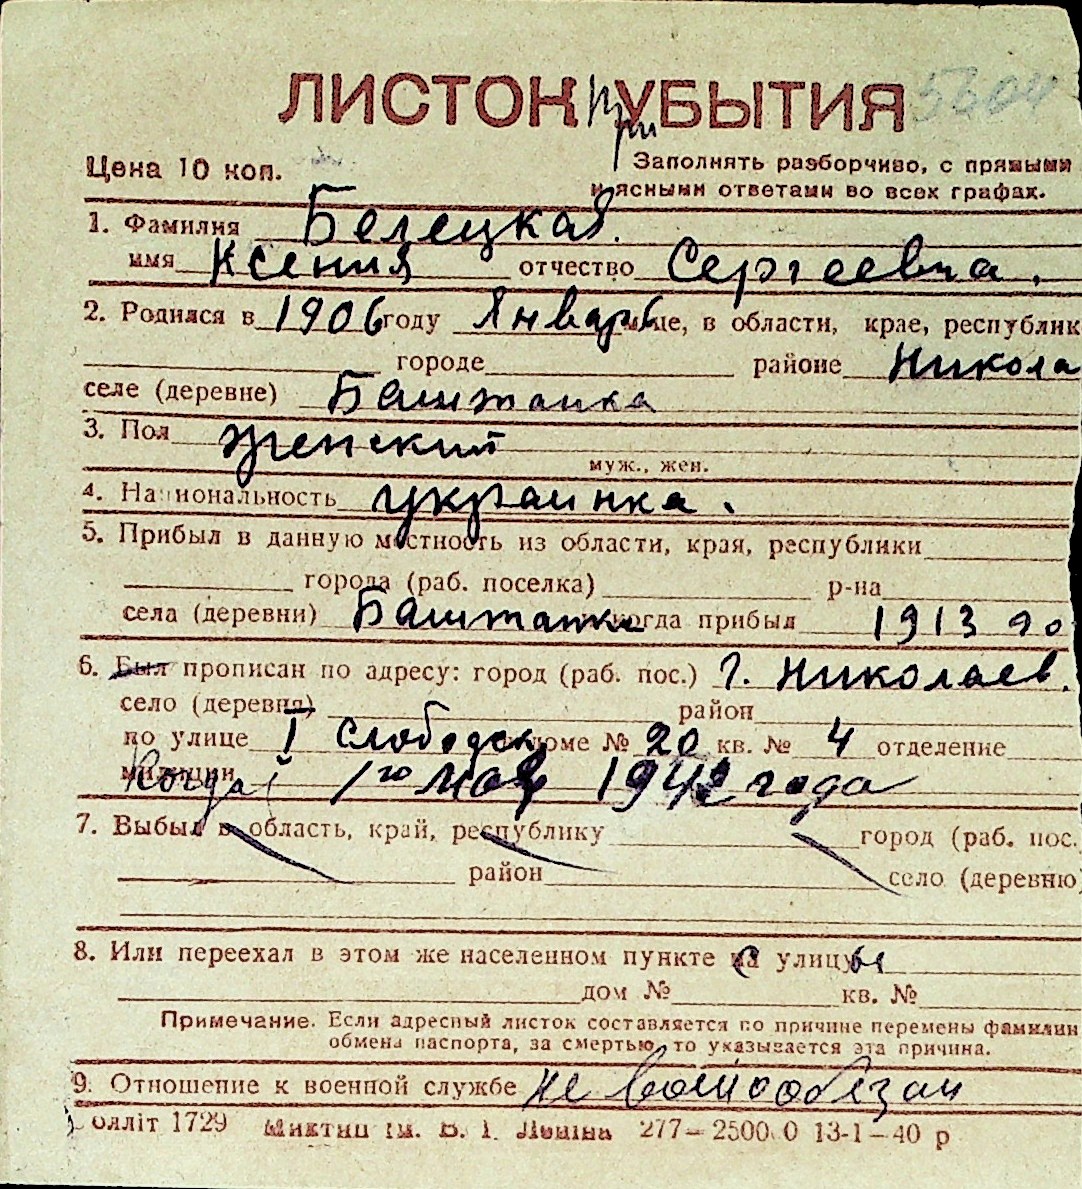 ЛИСТОК при УБЫТИЯ 5304
Цена 10 коп. Заполнять разборчиво, с прямыми
и ясными ответами во всех графах.
1. Фамилия Белецкая.
имя Ксения отчество Сергеевна.
2. Родился в 1906 году Январь м-це, в области, крае, республик
городе районе Никола
селе (деревне) Баштанка
3. Пол женский
муж., жен.
4. Национальность украинка.
5. Прибыл в данную местность из области, края, республики
города (раб. поселка) р-на
села (деревни) Баштанка когда прибыл 1913 го
6. Был прописан по адресу: город (раб. пос.) г. Николаев.
село (деревня) район
по улице I Слободск доме № 20 кв. № 4 отделение
милиции Когда 1го мая 1942 года
7. Выбыл в область, край, республику город (раб. пос.
район село (деревню)
8. Или переехал в этом же населенном пункте с улицы
дом № кв. №
Примечание. Если адресный листок составляется по причине перемены фамилии
обмена паспорта, за смертью, то указывается эта причина.
9. Отношение к военной службе не военообязан
олліт 1729 Миктип ім. В. І. Леніна 277—2500 0 13-1—40 р